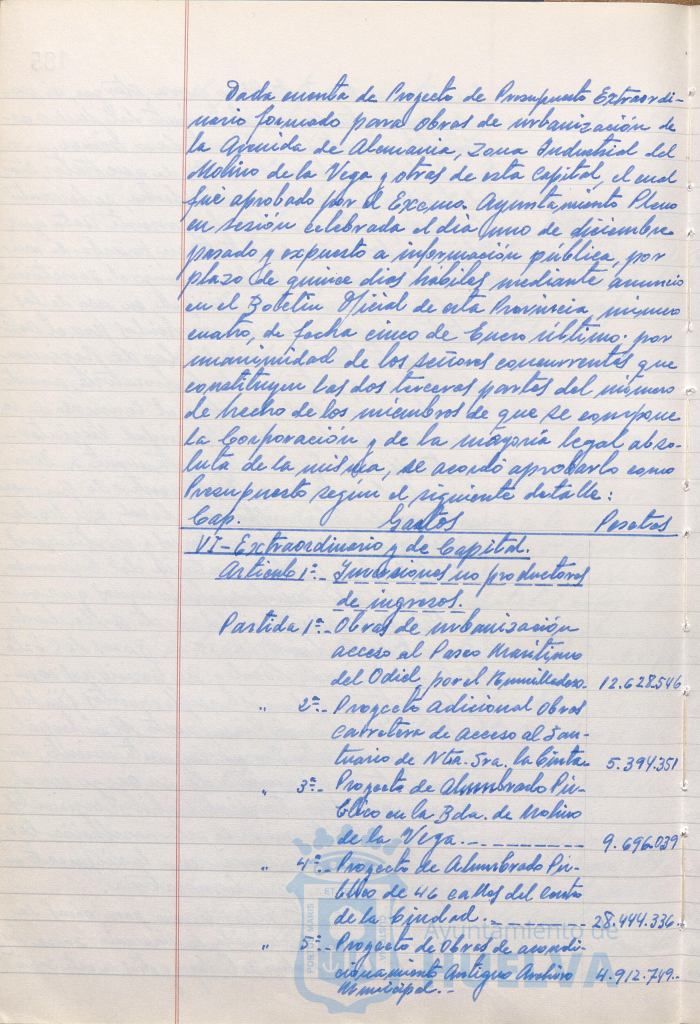 Dada cuenta de Proyecto de Presupuesto Extraordi-
nario formado para obras de urbanización de
la Avenida de Alemania, Zona Industrial del
Molino de la Vega y otras de esta Capital, el cual
fué aprobado por el Excmo. Ayuntamiento Pleno
en sesión celebrada el día uno de diciembre
pasado y expuesto a información pública, por
plazo de quince dias hábiles mediante anuncio
en el Boletín Oficial de esta Provincia, número
cuatro, de fecha cinco de Enero último; por
unanimidad de los señores concurrentes que
constituyen las dos terceras partes del número
de hecho de los miembros de que se compone
la Corporación y de la mayoría legal abso-
luta de la misma, se acordó aprobarlo como
Presupuesto según el siguiente detalle:
Cap. Gastos Pesetas
VI- Extraordinario y de Capital.
Articulo 1º.- Inversiones no productoras
de ingresos.
Partida 1ª.- Obras de urbanización
acceso al Paseo Marítimo
del Odiel, por el 12.628.546
" 2ª.- Proyecto adicional Obras
carretera de acceso al San-
tuario de Ntra. Sra. la Cinta- 5.394.351
" 3ª.- Proyecto de Alumbrado Pú-
blico en la Bda. de Molino
de la Vega. 9.696.039
" 4ª.- Proyecto de Alumbrado Pú-
blico de 46 calles del Centro
de la Ciudad. 28.444.336.
" 5ª.- Proyecto de Obras de acondi-
cionamiento Antiguo Archivo 4.912.749.-
Municipal.-
Ayuntamiento de
HUELVA